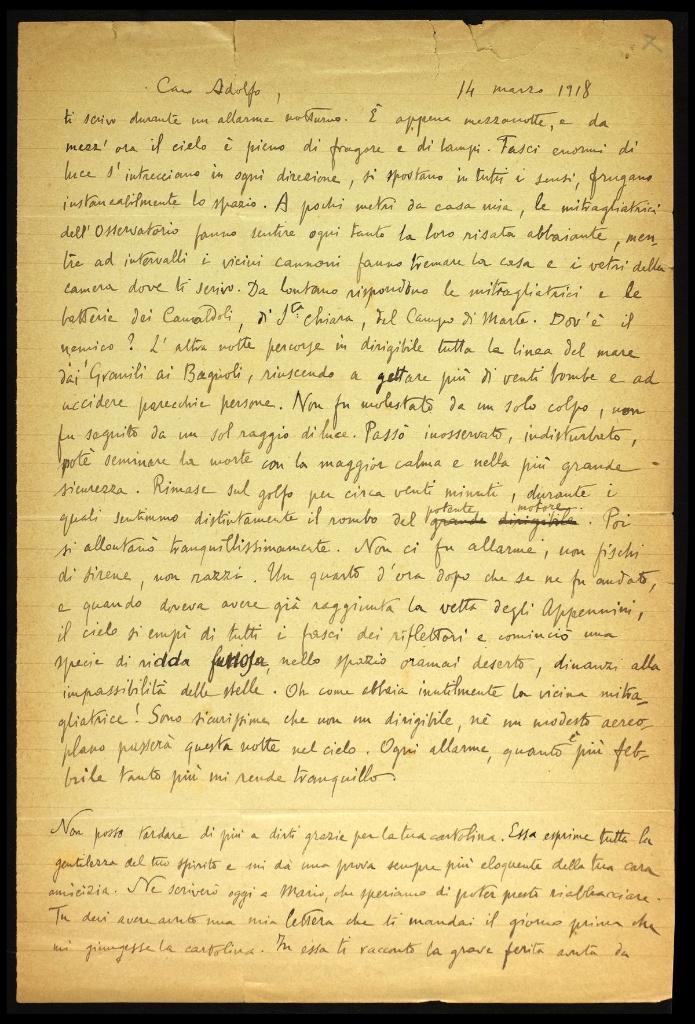 Caro Adolfo, 14 marzo 1918
ti scrivo durante un allarme notturno. È appena mezzanotte, e da
mezz'ora il cielo è pieno di fragore e di lampi. Fasci enormi di
luce s'intrecciano in ogni direzione, si spostano in tutti i sensi, frugano
instancabilmente lo spazio. A pochi metri da casa mia, le mitragliatrici
dell'Osservatorio fanno sentire ogni tanto la loro risata abbaiante, men-
tre ad intervalli i vicini cannoni fanno tremare la casa e i vetri della
camera dove ti scrivo. Da lontano rispondono le mitragliatrici e le
batterie dei Camaldoli, di Sta Chiara, del Campo di Marte. Dov'è il
nemico? L'altra notte percorse in dirigibile tutta la linea del mare
dai Granili ai Bagnoli, riuscendo a gettare più di venti bombe e ad
uccidere parecchie persone. Non fu molestato da un solo colpo, non
fu seguito da un sol raggio di luce. Passò inosservato, indisturbato,
potè seminare la morte con la maggior calma e nella più grande
sicurezza. Rimase sul golfo per circa venti minuti, durante i
quali sentimmo distintamente il rombo del grande dirigibile potente motore. Poi
si allontanò tranquillissimamente. Non ci fu allarme, non fischi
di sirene, non razzi. Un quarto d'ora dopo che se ne fu andato,
e quando doveva avere già raggiunta la vetta degli Appennini,
il cielo si empì di tutti i fasci dei riflettori e cominciò una
specie di ridda furiosa, nello spazio oramai deserto, dinanzi alla
impassibilità delle stelle. Oh come abbaia inutilmente la vicina mitra-
gliatrice! Sono sicurissimo che non un dirigibile, nè un modesto aereo-
plano passerà questa notte nel cielo. Ogni allarme, quanto è più feb-
brile tanto più mi rende tranquillo.
Non posso tardare di più a dirti grazie per la tua cartolina. Essa esprime tutta la
gentilezza del tuo spirito e mi dà una prova sempre più eloquente della tua cara
amicizia. Ne scriverò oggi a Mario, che speriamo di poter presto riabbracciare.
Tu devi avere avuto una mia lettera che ti mandai il giorno prima che
mi giungesse la cartolina. In essa ti racconto la grave ferita avuta da